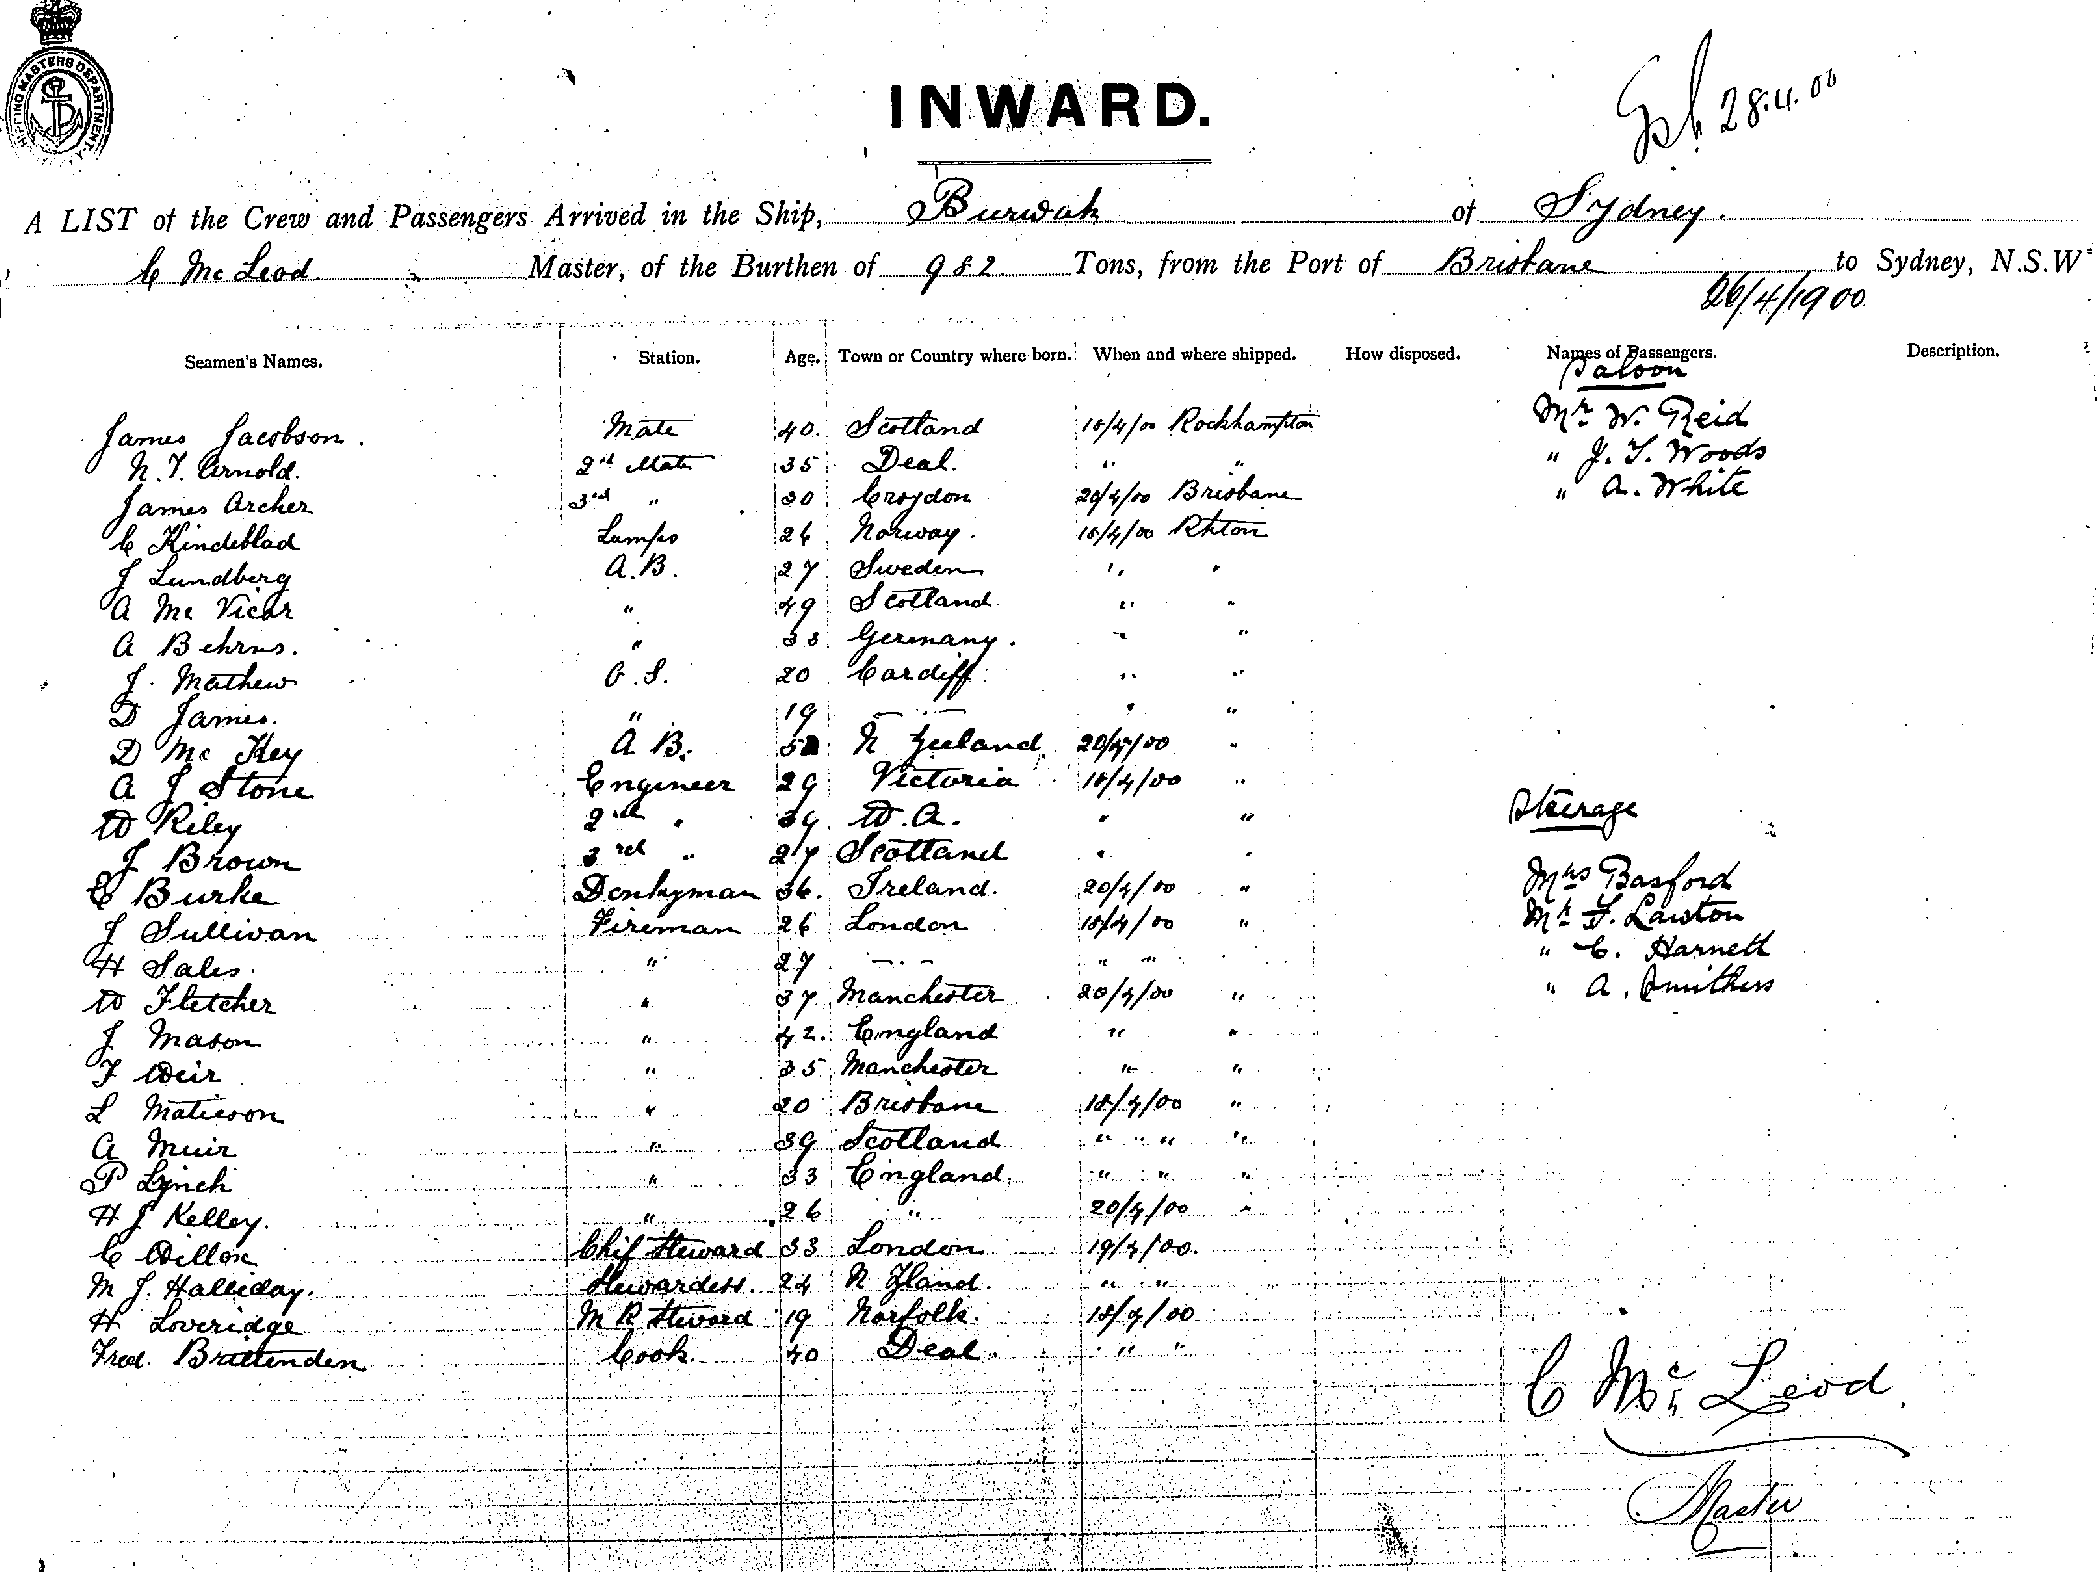 SHIPPING MASTERS DEPARTMENT
INWARD.
28.4.00
A LIST of the Crew and Passengers Arrived in the Ship, Burwah of Sydney.
C Mc Leod Master, of the Burthen of 982 Tons, from the Port of Brisbane to Sydney, N.S.W
26/4/1900
Seamen's Names. Station. Age. Town or Country where born. When and where shipped. How disposed. Names of Passengers. Description.
Saloon
James Jacobson. Mate 40. Scotland 18/4/00 Rockhampton Mr. W. Reid
N. T. Arnold. 2nd Mate 35 Deal. " " " J. T. Woods
James Archer 3rd " 30 Croydon 20/4/00 Brisbane " A. White
C Kindeblad Lamps 26 Norway. 18/4/00 Rhton
J Lundberg A.B. 27 Sweden " "
A Mc Vicar " 49 Scotland " "
A Behrns. " 38 Germany. " "
J. Mathew O.S. 20 Cardiff " "
D James. " 19 — " "
D Mc Key A B. N Zeeland 20/4/00 "
A J Stone Engineer 29 Victoria 18/4/00 "
W Riley 2nd " 39. W.A. " "
Steerage
J Brown 3rd " 27 Scotland " "
C Burke Donkyman 36. Ireland. 20/4/00 " Mrs Basford
J Sullivan Fireman 26 London 18/4/00 " Mr. F. Lawton
H Sales. " 27 — " " " C. Harnett
W Fletcher " 37 Manchester 20/4/00 " " A. Smithers
J Mason " 42. England " "
F Weir " 35 Manchester " "
L Matieson " 20 Brisbane 18/4/00 "
A Muir " 39 Scotland " " "
P Lynch " 33 England. " " "
H J Kelley. " 26 " 20/4/00 "
C Dillon Chif Steward 33 London 19/4/00.
M J. Halliday. Stewardess. 24 N Zland. " "
H Loveridge M R Steward 19 Norfolk. 18/4/00
Fred. Brittenden Cook. 40 Deal. " "
C Mc Leod
Master